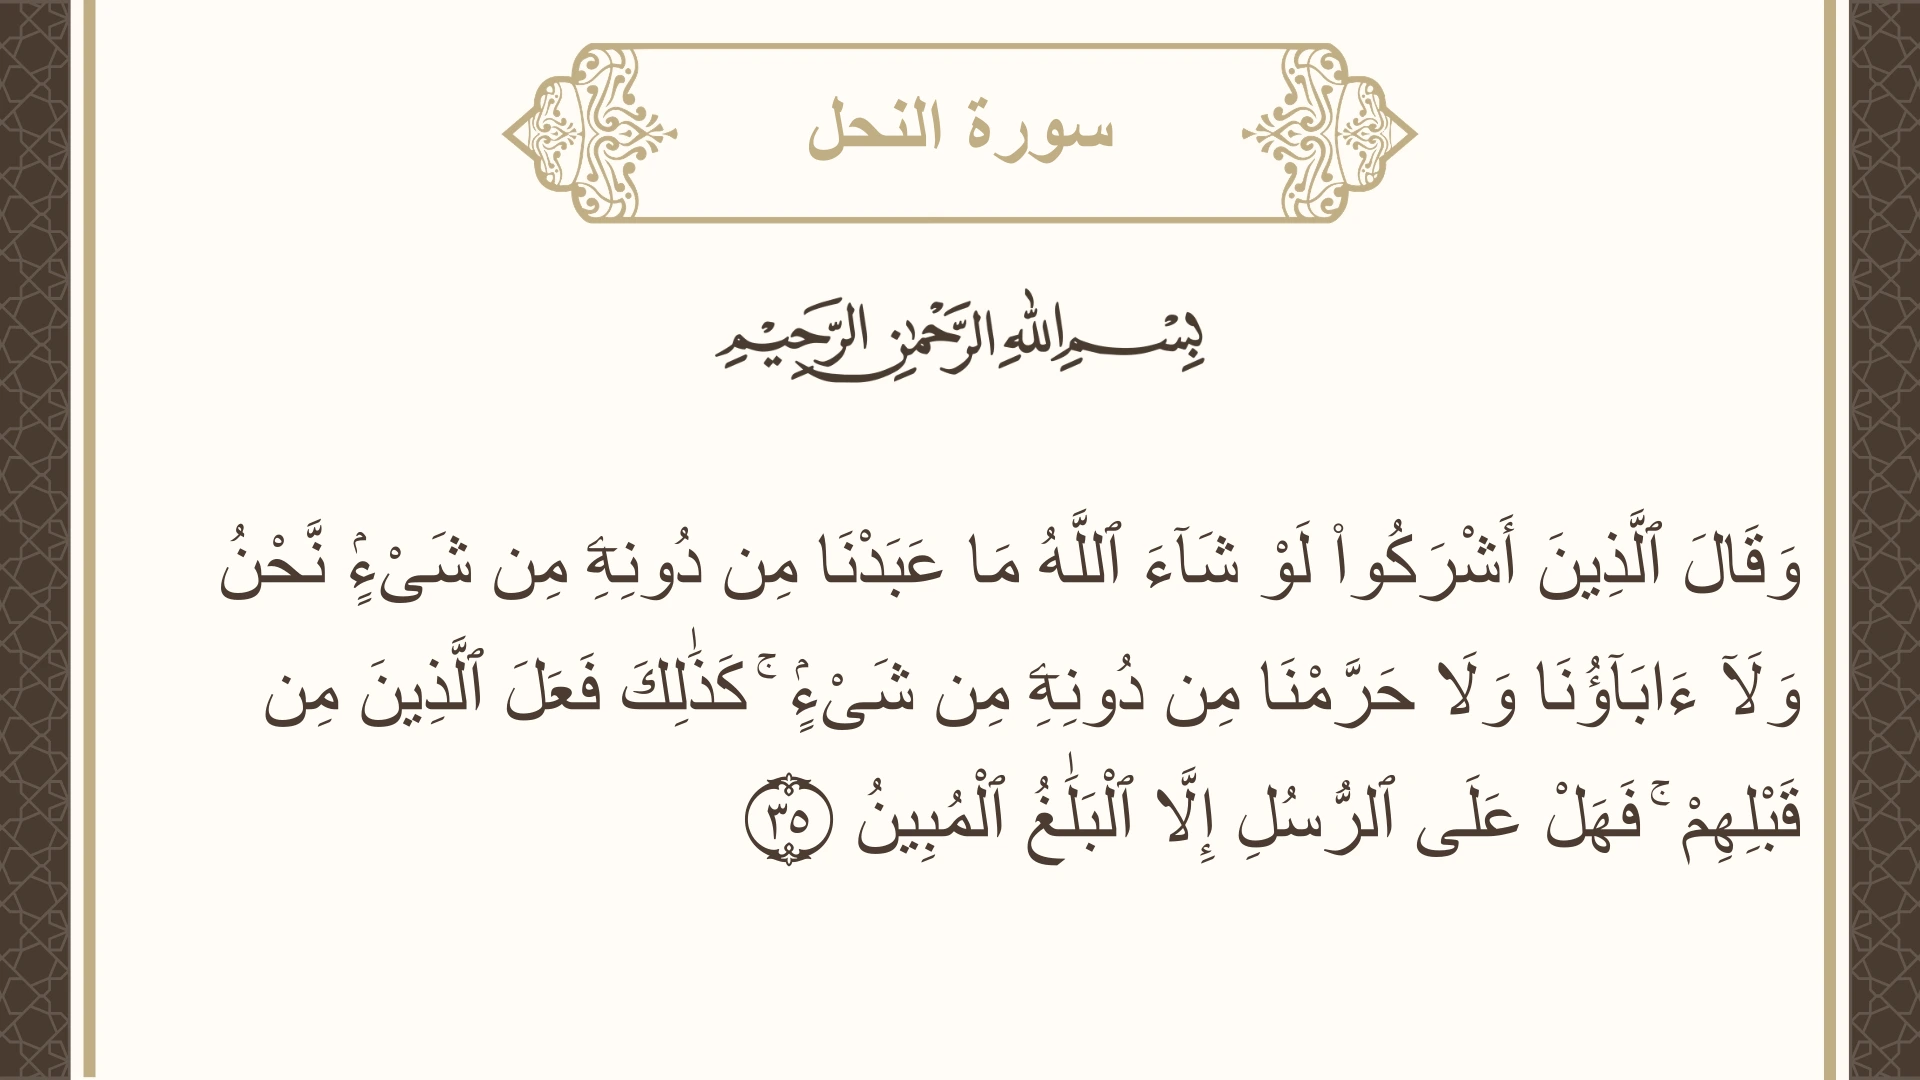 سورة النحل
بِسْمِ اللهِ الرَّحْمٰنِ الرَّحِيْمِ
وَقَالَ ٱلَّذِينَ أَشْرَكُوا۟ لَوْ شَآءَ ٱللَّهُ مَا عَبَدْنَا مِن دُونِهِۦ مِن شَىْءٍۢ نَّحْنُ
وَلَآ ءَابَآؤُنَا وَلَا حَرَّمْنَا مِن دُونِهِۦ مِن شَىْءٍۢ ۚ كَذَٰلِكَ فَعَلَ ٱلَّذِينَ مِن
قَبْلِهِمْ ۚ فَهَلْ عَلَى ٱلرُّسُلِ إِلَّا ٱلْبَلَٰغُ ٱلْمُبِينُ ٣٥